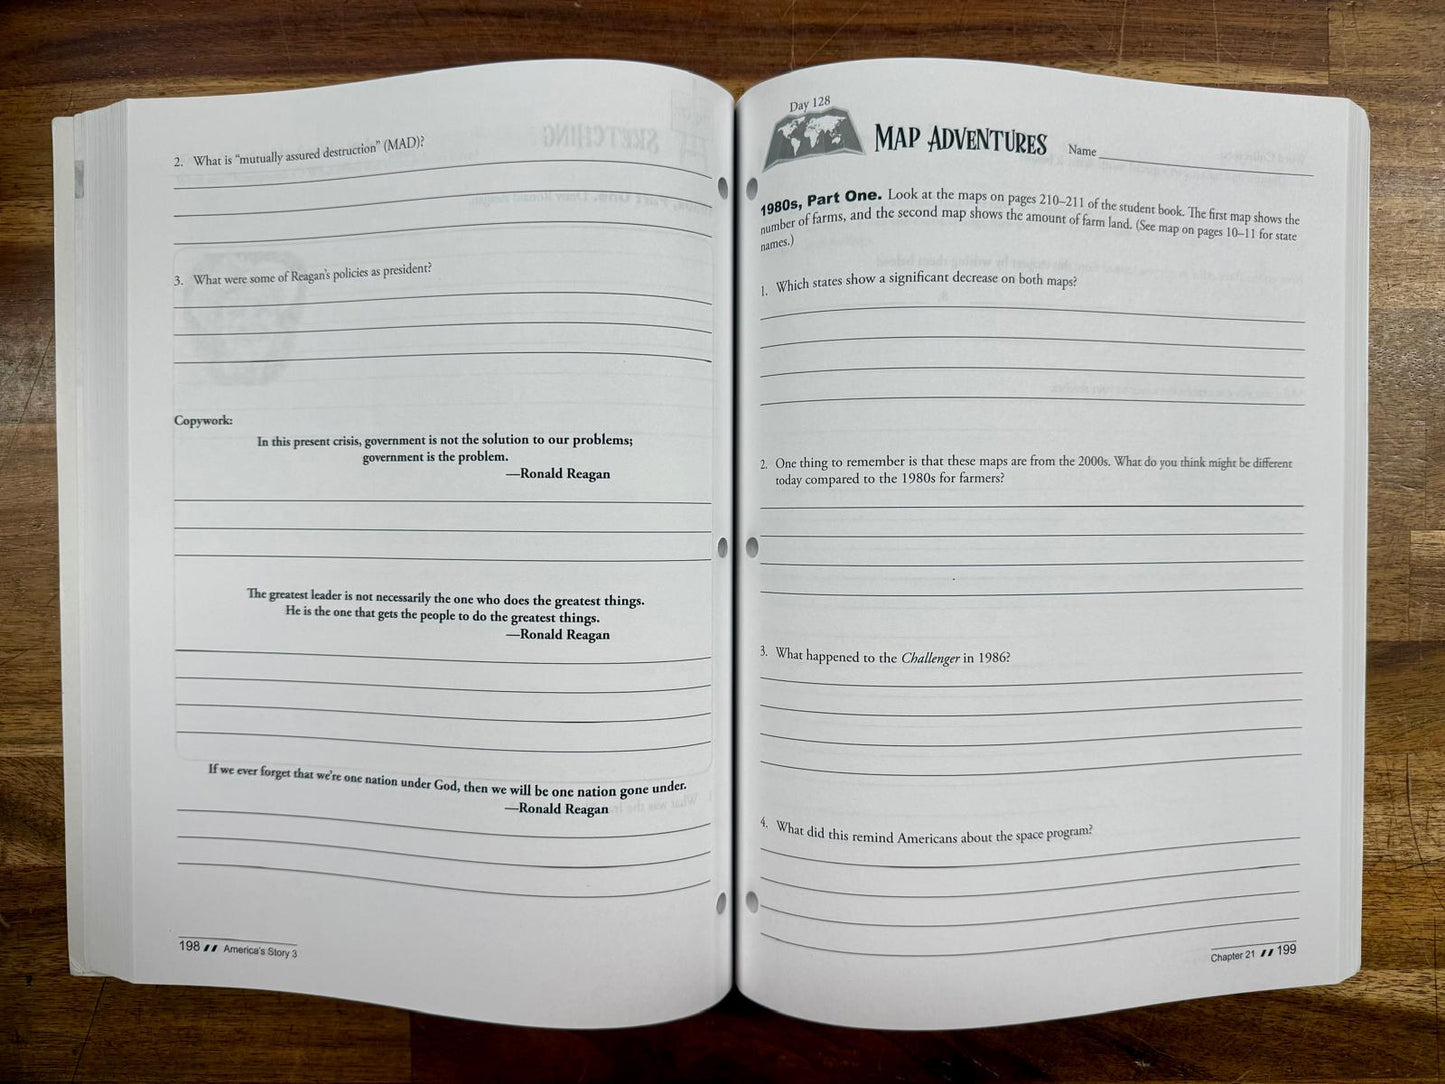 2. What is “mutually assured destruction” (MAD)?
3. What were some of Reagan's policies as president?
Copywork:
In this present crisis, government is not the solution to our problems;
government is the problem.
—Ronald Reagan
The greatest leader is not necessarily the one who does the greatest things.
He is the one that gets the people to do the greatest things.
—Ronald Reagan
If we ever forget that we're one nation under God, then we will be one nation gone under.
—Ronald Reagan
198 // America's Story 3
Day 128
MAP ADVENTURES
Name
1980s, Part One. Look at the maps on pages 210–211 of the student book. The first map shows the
number of farms, and the second map shows the amount of farm land. (See map on pages 10–11 for state
names.)
1. Which states show a significant decrease on both maps?
2. One thing to remember is that these maps are from the 2000s. What do you think might be different
today compared to the 1980s for farmers?
3. What happened to the Challenger in 1986?
4. What did this remind Americans about the space program?
Chapter 21 // 199